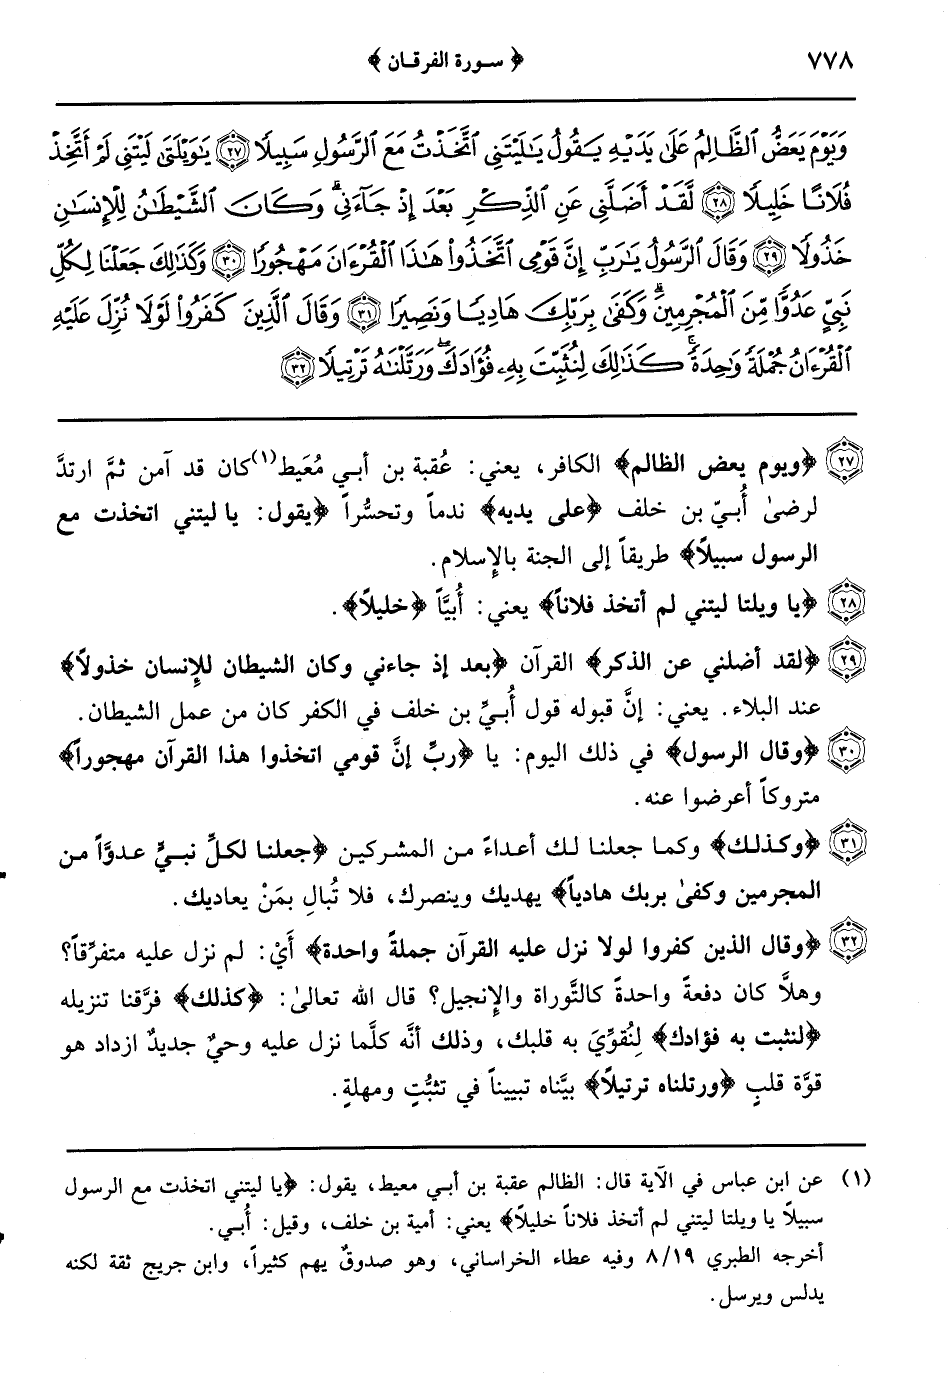 ٧٧٨ ﴿ سورة الفرقان ﴾
وَيَوْمَ يَعَضُّ ٱلظَّالِمُ عَلَىٰ يَدَيْهِ يَقُولُ يَٰلَيْتَنِى ٱتَّخَذْتُ مَعَ ٱلرَّسُولِ سَبِيلًا ٢٧ يَٰوَيْلَتَىٰ لَيْتَنِى لَمْ أَتَّخِذْ
فُلَانًا خَلِيلًا ٢٨ لَّقَدْ أَضَلَّنِى عَنِ ٱلذِّكْرِ بَعْدَ إِذْ جَآءَنِى ۗ وَكَانَ ٱلشَّيْطَٰنُ لِلْإِنسَٰنِ
خَذُولًا ٢٩ وَقَالَ ٱلرَّسُولُ يَٰرَبِّ إِنَّ قَوْمِى ٱتَّخَذُوا۟ هَٰذَا ٱلْقُرْءَانَ مَهْجُورًا ٣٠ وَكَذَٰلِكَ جَعَلْنَا لِكُلِّ
نَبِىٍّ عَدُوًّا مِّنَ ٱلْمُجْرِمِينَ ۗ وَكَفَىٰ بِرَبِّكَ هَادِيًا وَنَصِيرًا ٣١ وَقَالَ ٱلَّذِينَ كَفَرُوا۟ لَوْلَا نُزِّلَ عَلَيْهِ
ٱلْقُرْءَانُ جُمْلَةً وَٰحِدَةً ۚ كَذَٰلِكَ لِنُثَبِّتَ بِهِۦ فُؤَادَكَ ۖ وَرَتَّلْنَٰهُ تَرْتِيلًا ٣٢
٢٧ ﴿ويوم يعض الظالم﴾ الكافر، يعني: عُقبة بن أبي مُعَيط(١) كان قد آمن ثمَّ ارتدَّ
لرضىٰ أُبيّ بن خلف ﴿على يديه﴾ ندماً وتحسُّراً ﴿يقول: يا ليتني اتخذت مع
الرسول سبيلاً﴾ طريقاً إلى الجنة بالإِسلام.
٢٨ ﴿يا ويلتا ليتني لم أتخذ فلاناً﴾ يعني: أُبيَّاً ﴿خليلاً﴾.
٢٩ ﴿لقد أضلني عن الذكر﴾ القرآن ﴿بعد إذ جاءني وكان الشيطان للإِنسان خذولاً﴾
عند البلاء. يعني: إنَّ قبوله قول أُبيِّ بن خلف في الكفر كان من عمل الشيطان.
٣٠ ﴿وقال الرسول﴾ في ذلك اليوم: يا ﴿ربِّ إنَّ قومي اتخذوا هذا القرآن مهجوراً﴾
متروكاً أعرضوا عنه.
٣١ ﴿وكذلك﴾ وكما جعلنا لك أعداءً من المشركين ﴿جعلنا لكلِّ نبيٍّ عدوَّاً من
المجرمين وكفىٰ بربك هادياً﴾ يهديك وينصرك، فلا تُبالِ بمَنْ يعاديك.
٣٢ ﴿وقال الذين كفروا لولا نزل عليه القرآن جملةً واحدة﴾ أَيْ: لم نزل عليه متفرِّقاً؟
وهلاَّ كان دفعةً واحدةً كالتَّوراة والإِنجيل؟ قال الله تعالىٰ: ﴿كذلك﴾ فرَّقنا تنزيله
﴿لنثبت به فؤادك﴾ لِنُقوِّيَ به قلبك، وذلك أنَّه كلَّما نزل عليه وحيٌ جديدٌ ازداد هو
قوَّة قلبٍ ﴿ورتلناه ترتيلاً﴾ بيَّناه تبييناً في تثبُّتٍ ومهلةٍ.
(١) عن ابن عباس في الآية قال: الظالم عقبة بن أبي معيط، يقول: ﴿يا ليتني اتخذت مع الرسول
سبيلاً يا ويلتا ليتني لم أتخذ فلاناً خليلاً﴾ يعني: أمية بن خلف، وقيل: أُبي.
أخرجه الطبري ٨/١٩ وفيه عطاء الخراساني، وهو صدوقٌ يهم كثيراً، وابن جريج ثقة لكنه
يدلس ويرسل.